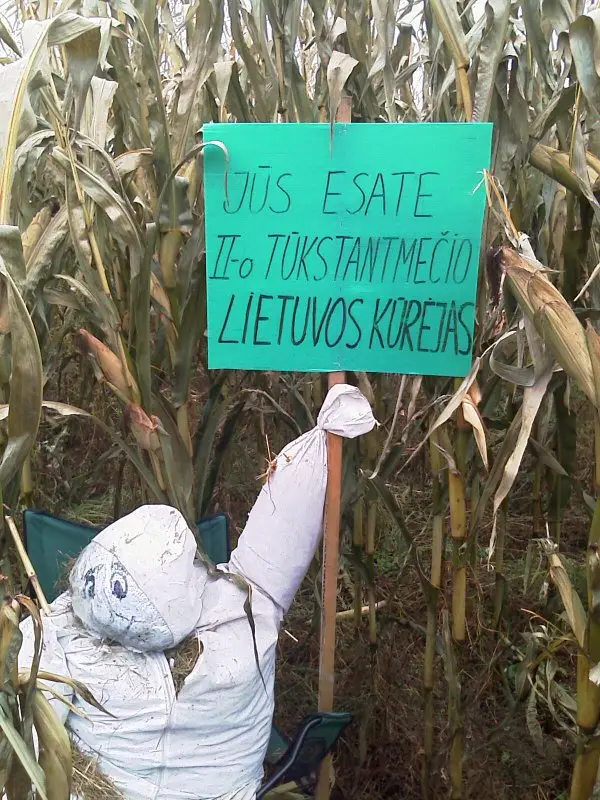 JŪS ESATE
II-o TŪKSTANTMEČIO
LIETUVOS KŪRĖJAS